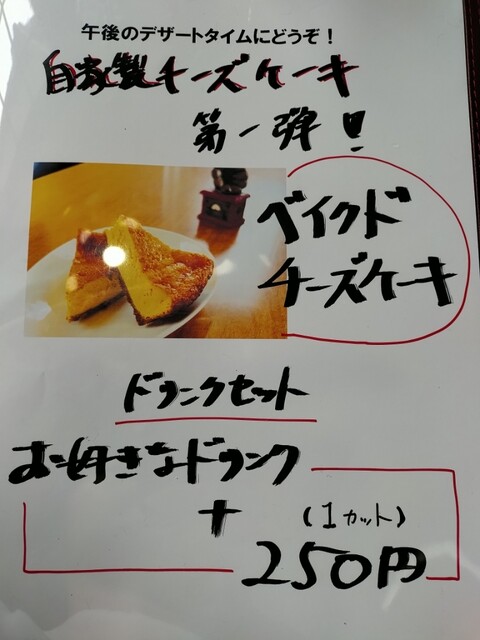 午後のデザートタイムにどうぞ!
自家製チーズケーキ
第一弾!
ベイクド
チーズケーキ
ドリンクセット
お好きなドリンク
+
(1カット)
250円